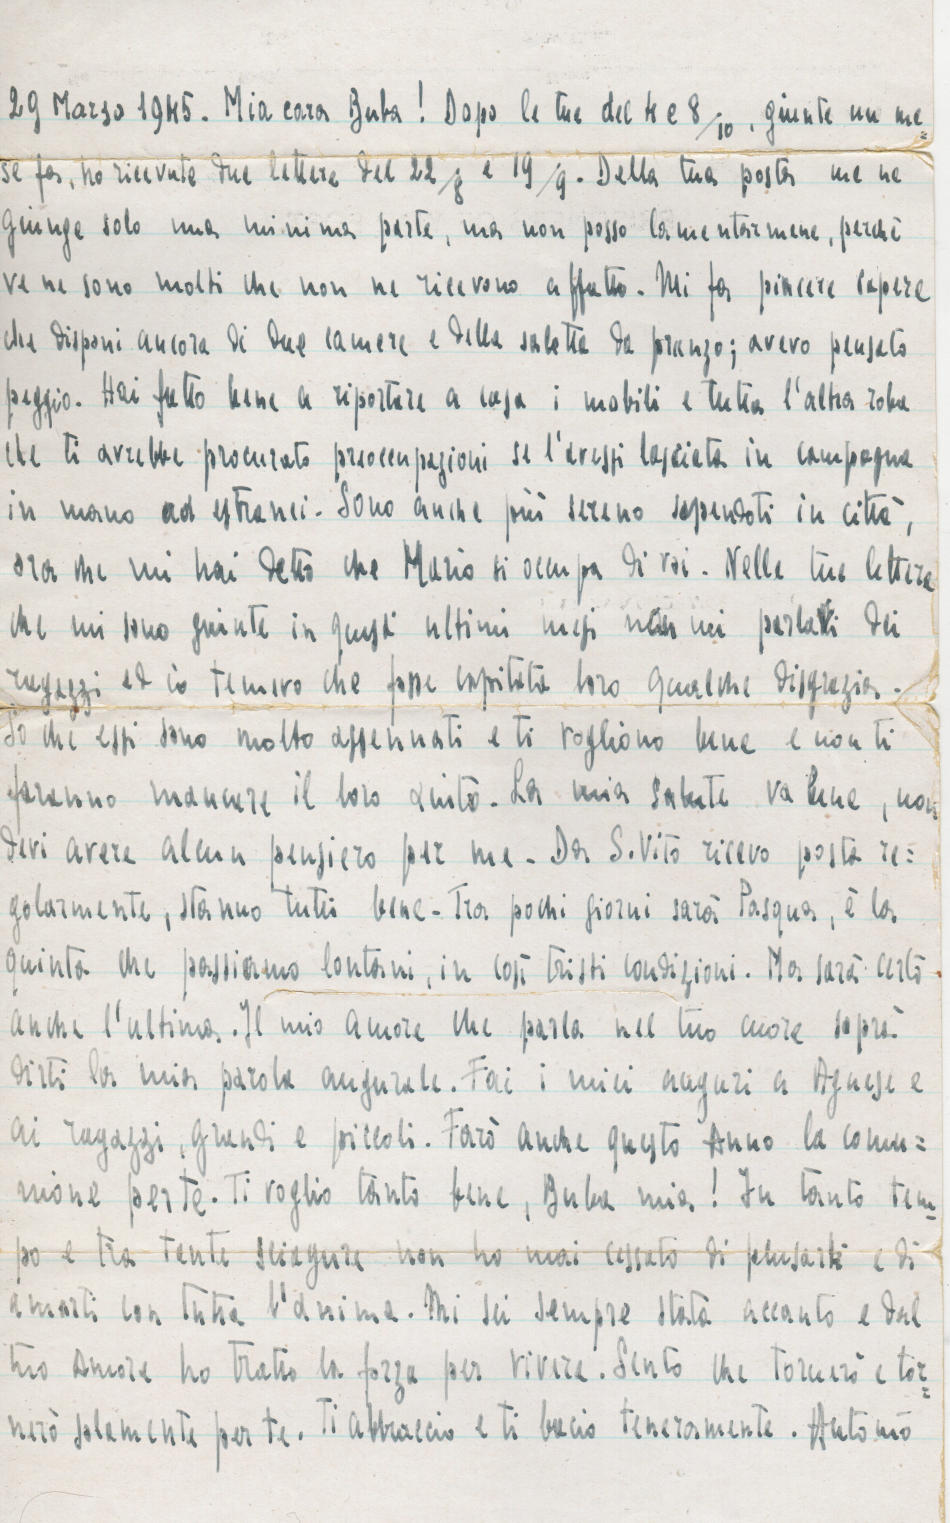 29 Marzo 1945. Mia cara Buba! Dopo le tue del 4 e 8/10, giunte un me=
se fa, ho ricevute due lettere del 22/8 e 19/9. Della tua posta me ne
giunge solo una minima parte, ma non posso lamentarmene, perchè
ve ne sono molti che non ne ricevono affatto. Mi fa piacere sapere
che disponi ancora di due camere e della saletta da pranzo; avevo pensato
peggio. Hai fatto bene a riportare a casa i mobili e tutta l'altra roba
che ti avrebbe procurato preoccupazioni se l'avessi lasciata in campagna
in mano ad estranei. Sono anche più sereno sapendoti in città,
ora che mi hai detto che Mario si occupa di voi. Nelle tue lettere
che mi sono giunte in questi ultimi mesi non mi parlavi dei
ragazzi ed io temevo che fosse capitata loro qualche disgrazia.
So che essi sono molto assennati e ti vogliono bene e non ti
faranno mancare il loro aiuto. La mia salute va bene, non
devi avere alcun pensiero per me. Da S. Vito ricevo posta re=
golarmente, stanno tutti bene. Tra pochi giorni sarà Pasqua, è la
quinta che passiamo lontani, in così tristi condizioni. Ma sarà certo
anche l'ultima. Il mio amore che parla nel tuo cuore saprà
dirti la mia parola augurale. Fai i miei auguri a Agnese e
ai ragazzi, grandi e piccoli. Farò anche questo Anno la comu=
nione per te. Ti voglio tanto bene, Buba mia! In tanto tem=
po e tra tante sciagure non ho mai cessato di pensarti e di
amarti con tutta l'anima. Mi sei sempre stata accanto e dal
tuo amore ho tratto la forza per vivere. Sento che tornerò e tor=
nerò solamente per te. Ti abbraccio e ti bacio teneramente. Antonio